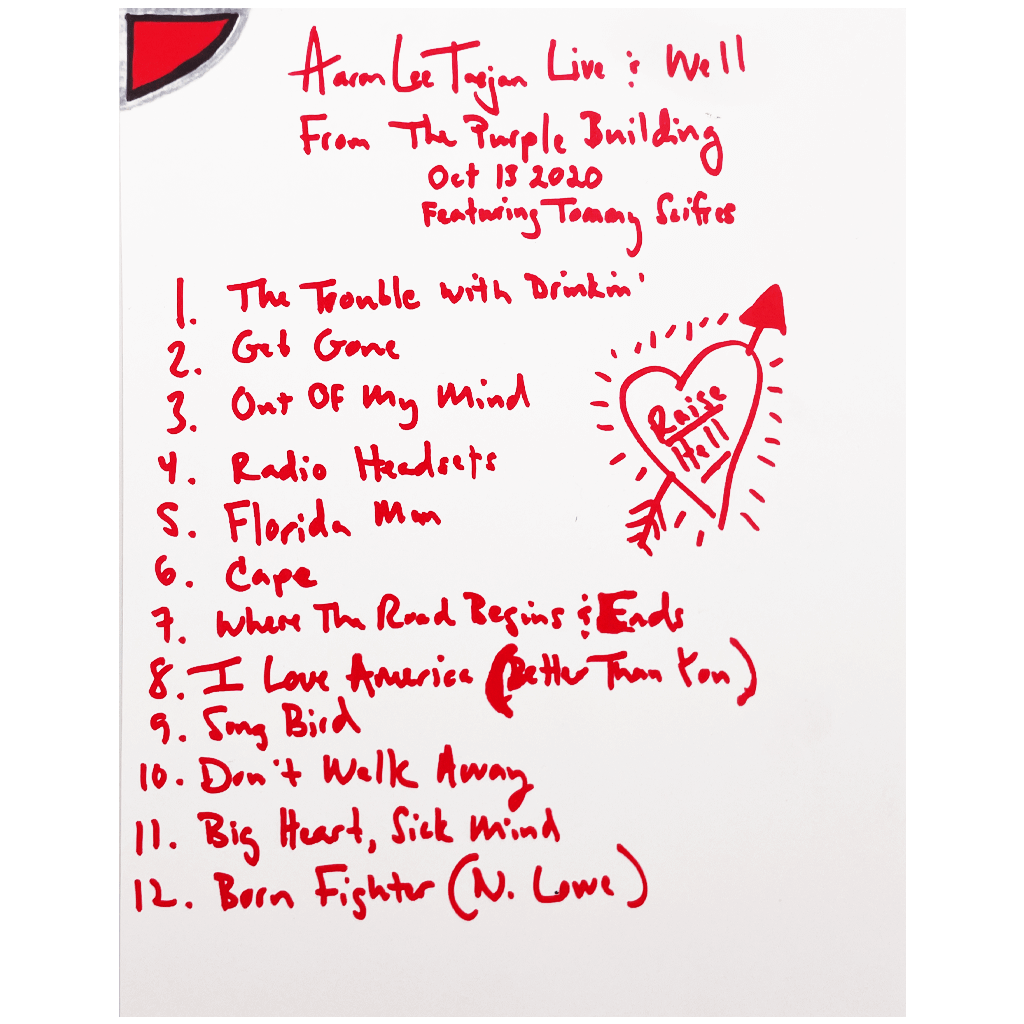 Aaron Lee Tasjan Live & Well
From The Purple Building
Oct 13 2020
Featuring Tommy Scifres
1. The Trouble with Drinkin'
2. Get Gone
3. Out OF My Mind
4. Radio Headsets
5. Florida Man
6. Cape
7. Where The Road Begins & Ends
8. I Love America (Better Than You)
9. Song Bird
10. Don't Walk Away
11. Big Heart, Sick Mind
12. Born Fighter (N. Lowe)
Raise
Hell